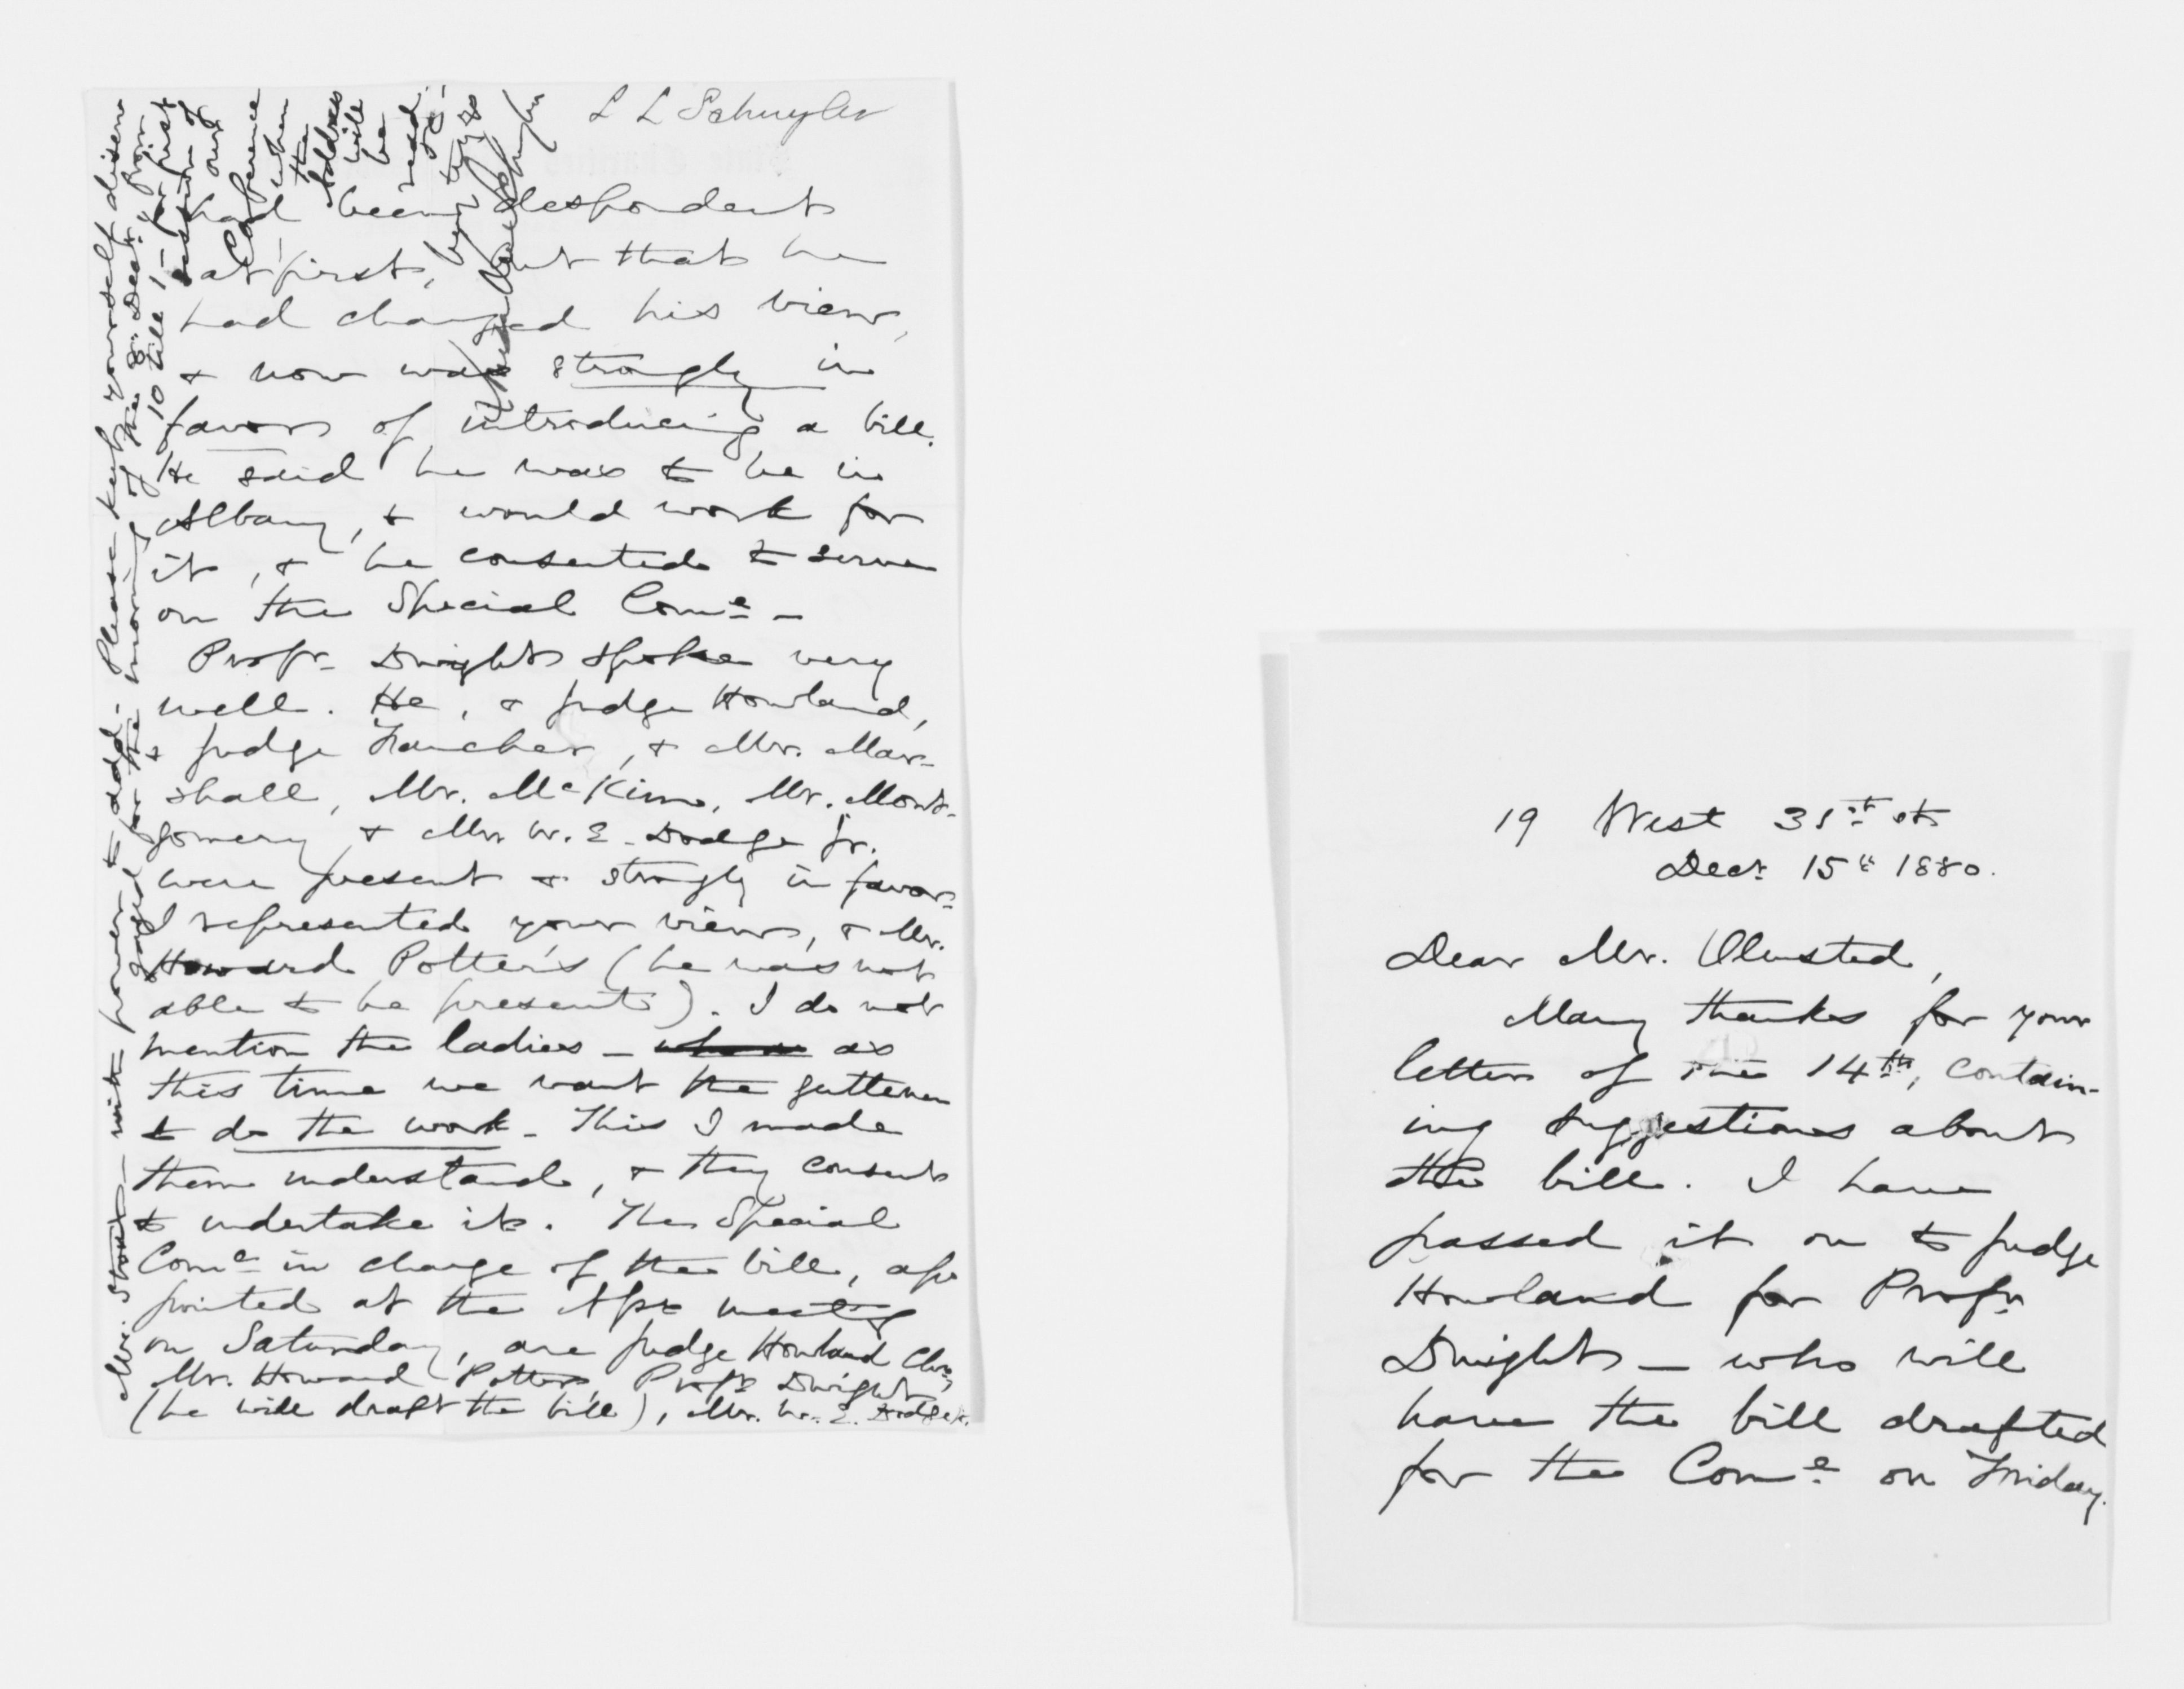 L L Schuyler
had been despondent
at first, but that he
had changed his view,
& now was strongly in
favor of introducing a bill.
He said he was to be in
Albany, & would work for
it, & he consented to serve
on the Special Come –
Profr. Dwight spoke very
well. He, & Judge Howland,
& Judge Fancher, & Mr. Mar-
shall, Mr. McKim, Mr. Mont-
gomery & Mr. W. E. Dodge Jr.
were present & strongly in favor.
I represented your views, & Mr.
Howard Potter's (he was not
able to be present). I do not
mention the ladies – as
this time we want the gentlemen
to do the work. This I made
them understand, & they consent
to undertake it. The Special
Come in charge of the bill, ap
pointed at the meeting
on Saturday, are Judge Howland Chn,
Mr. Howard Potter, Profr Dwight
(he will draft the bill), Mr. W. E. Dodge Jr.
Mr. – with power to add – Please keep yourself disen
gaged for the morning of the Decr. from
10 till 1 – for first
session of
our
Conference
when
the
address
will
be
read.
very truly yrs
Schuyler
19 West 31st st
Decr 15th 1880.
Dear Mr. Olmsted,
Many thanks for your
letter of the 14th, contain-
ing suggestions about
the bill. I have
passed it on to Judge
Howland for Profr
Dwight – who will
have the bill drafted
for the Come on Friday.